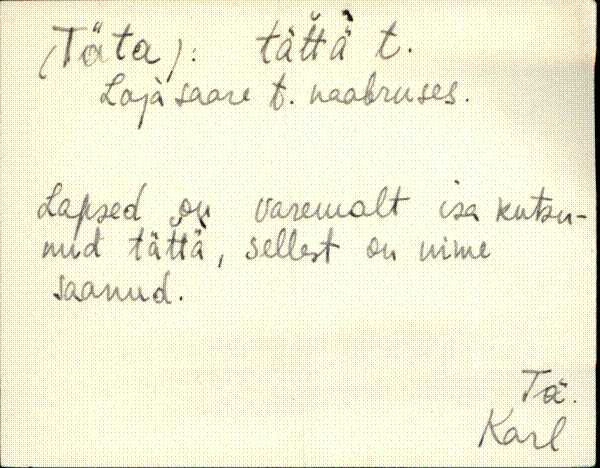 (Täta): tättä t.
Lojasaare t. naabruses.
Lapsed on varemalt isa kutsu-
nud tättä, sellest on nime
saanud.
Tä.
Karl